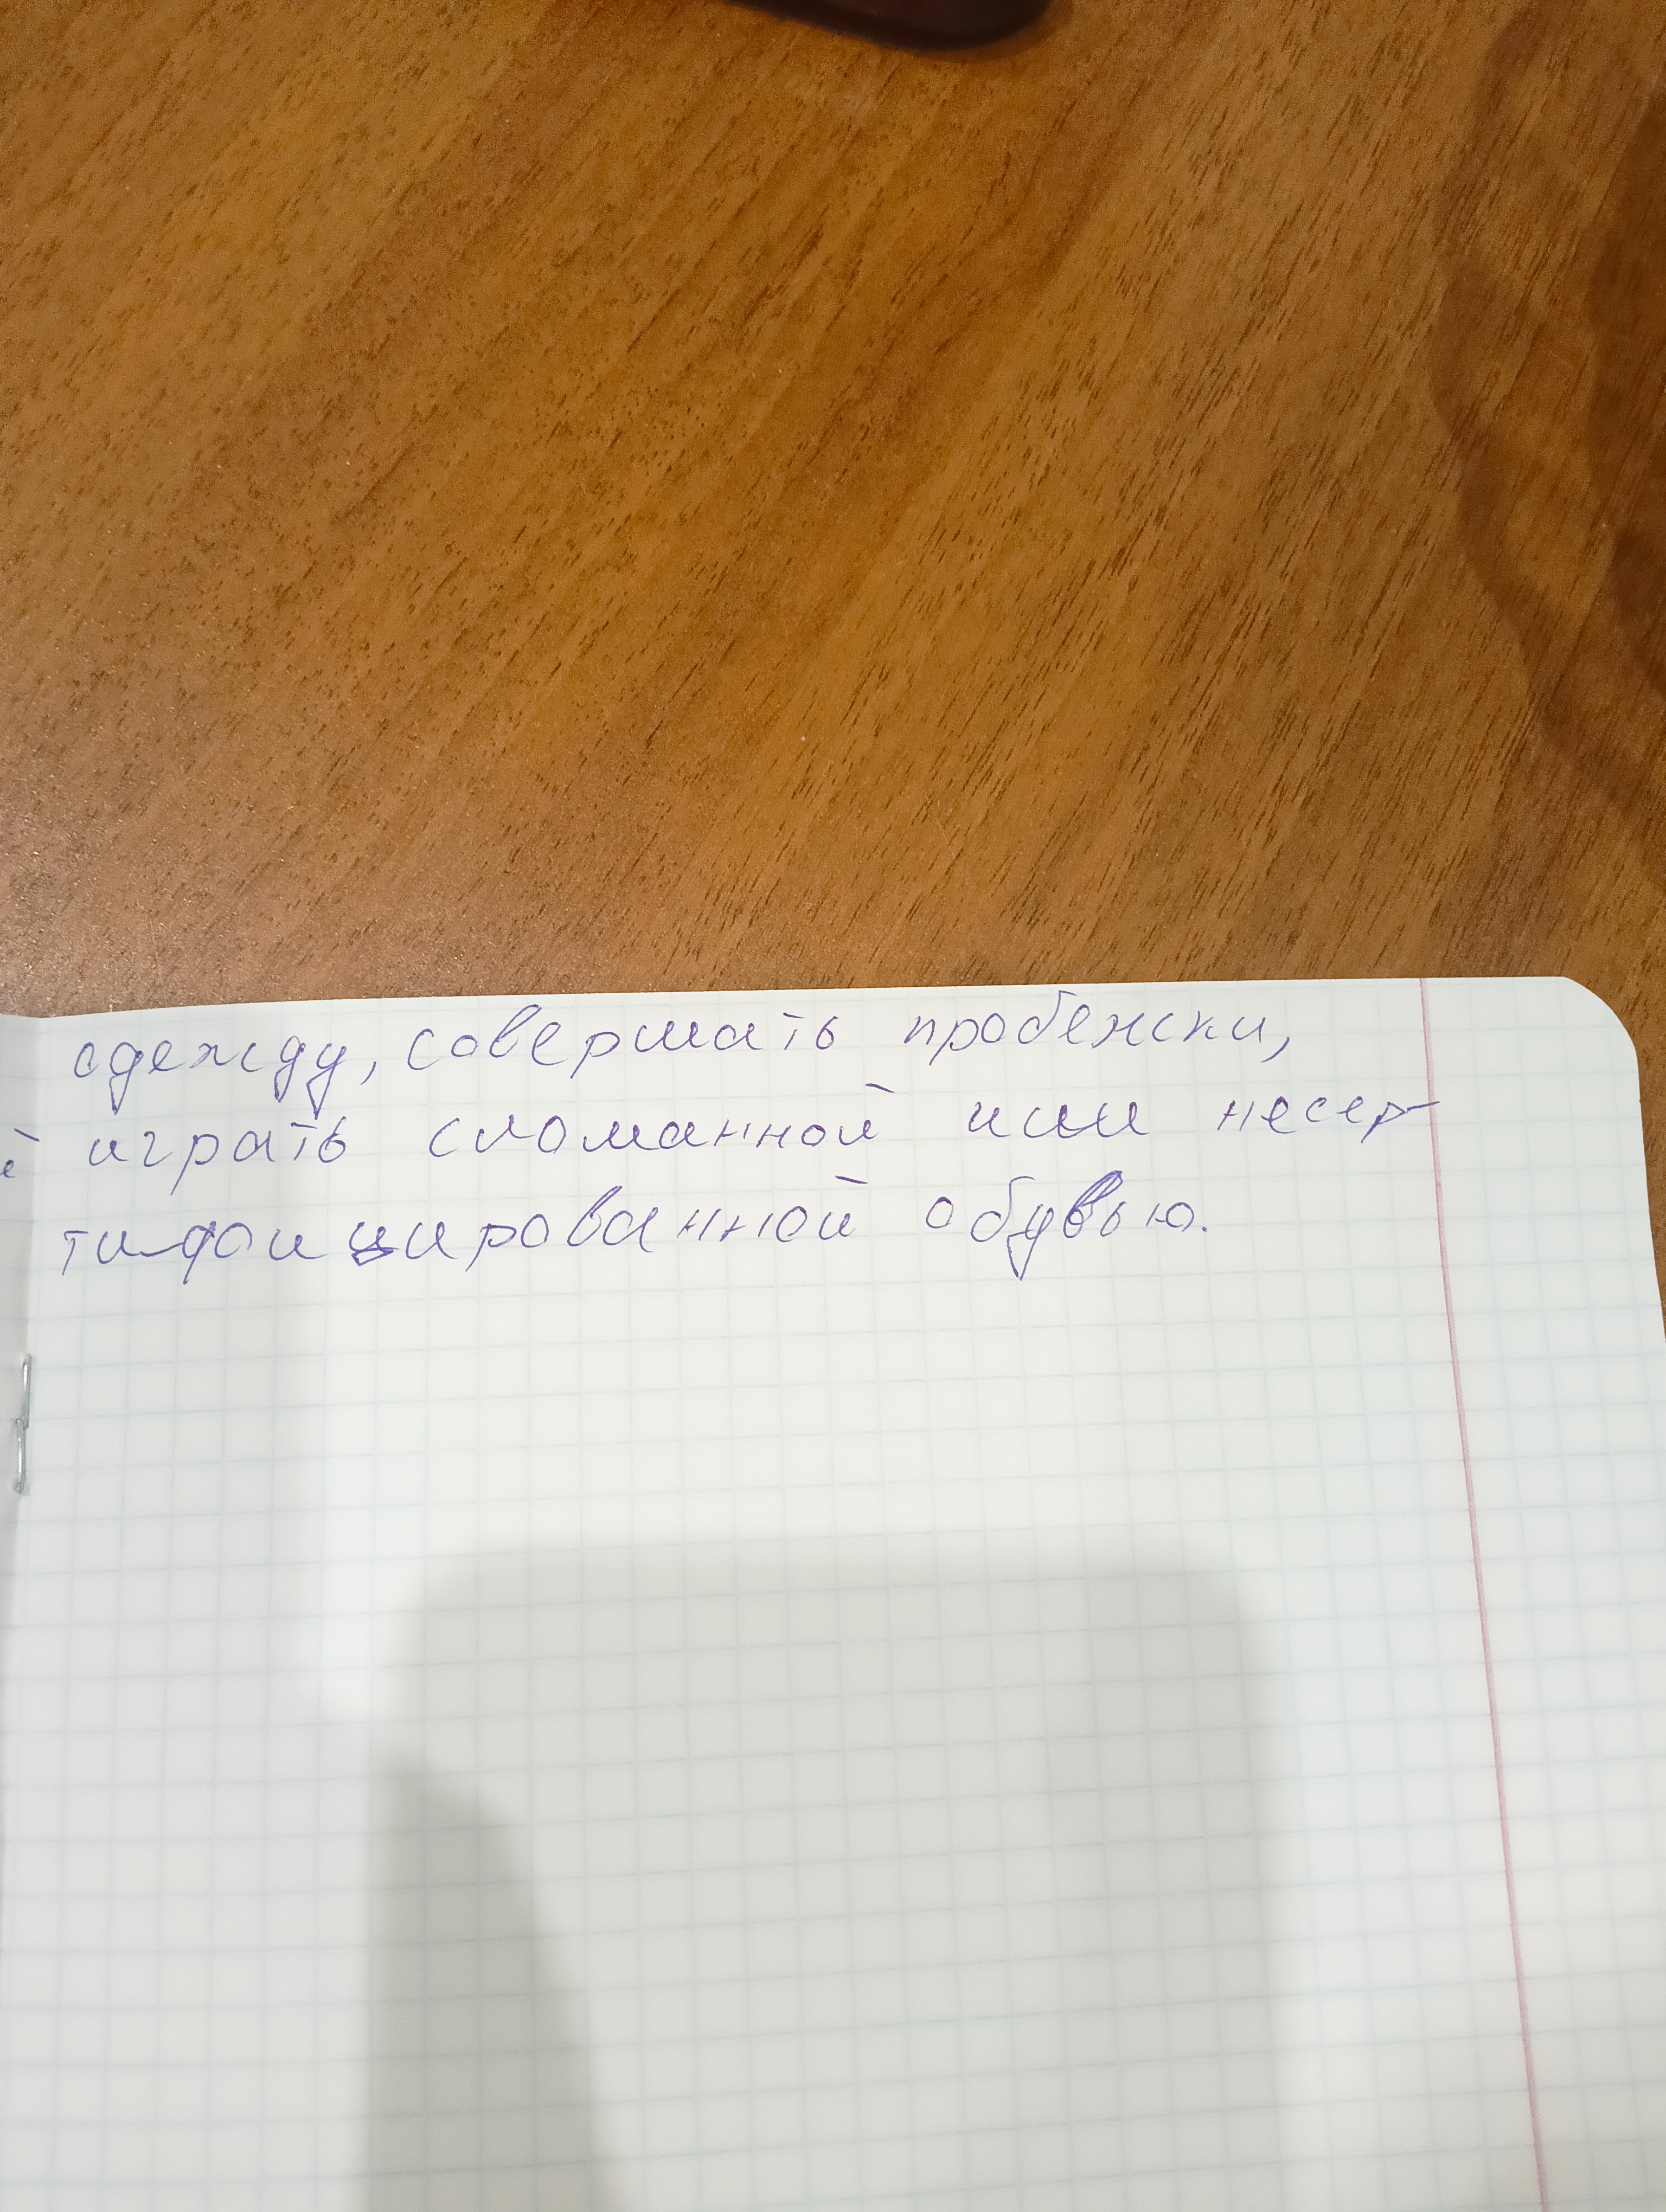 одежду, совершать пробежки,
играть сломанной или несер-
тифицированной обувью.